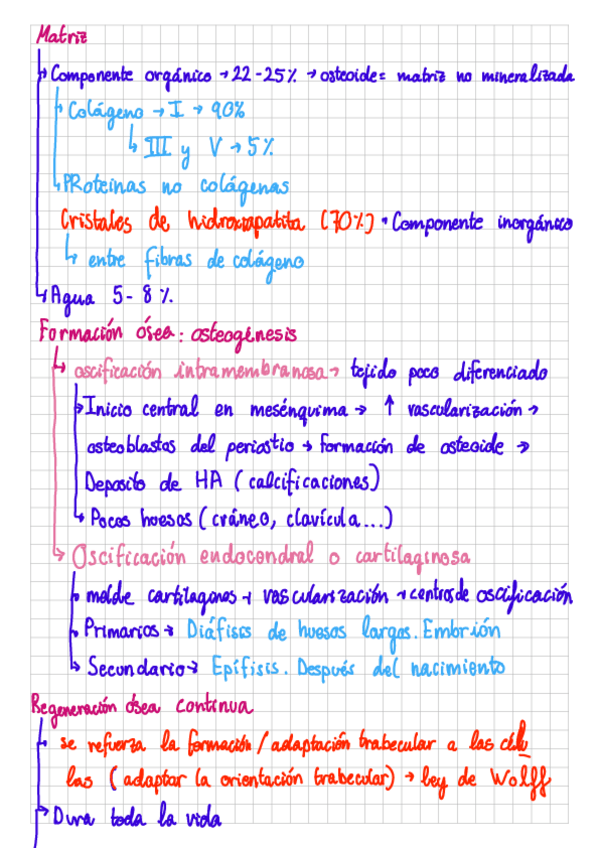 Matriz
↳ Componente orgánico → 22-25% → osteoide = matriz no mineralizada
↳ Colágeno → I → 90%
↳ III y V → 5%
↳ PRoteinas no colágenas
Cristales de hidroxiapatita (70%) • Componente inorgánico
↳ entre fibras de colágeno
↳ Agua 5-8%
Formación ósea: osteogénesis
↳ oscificación intramembranosa → tejido poco diferenciado
↳ Inicio central en mesénquima → ↑ vascularización →
osteoblastos del periostio → formación de osteoide →
Deposito de HA (calcificaciones)
↳ Pocos huesos (cráneo, clavícula...)
↳ Oscificación endocondral o cartilaginosa
↳ molde cartilagonos → vascularización → centros de oscificación
↳ Primarios → Diáfisis de huesos largos. Embrión
↳ Secundario → Epífisis. Después del nacimiento
Regeneración ósea continua
↳ se refuerza la formación / adaptación trabecular a las célu
las (adaptar la orientación trabecular) → ley de Wolff
→ Dura toda la vida